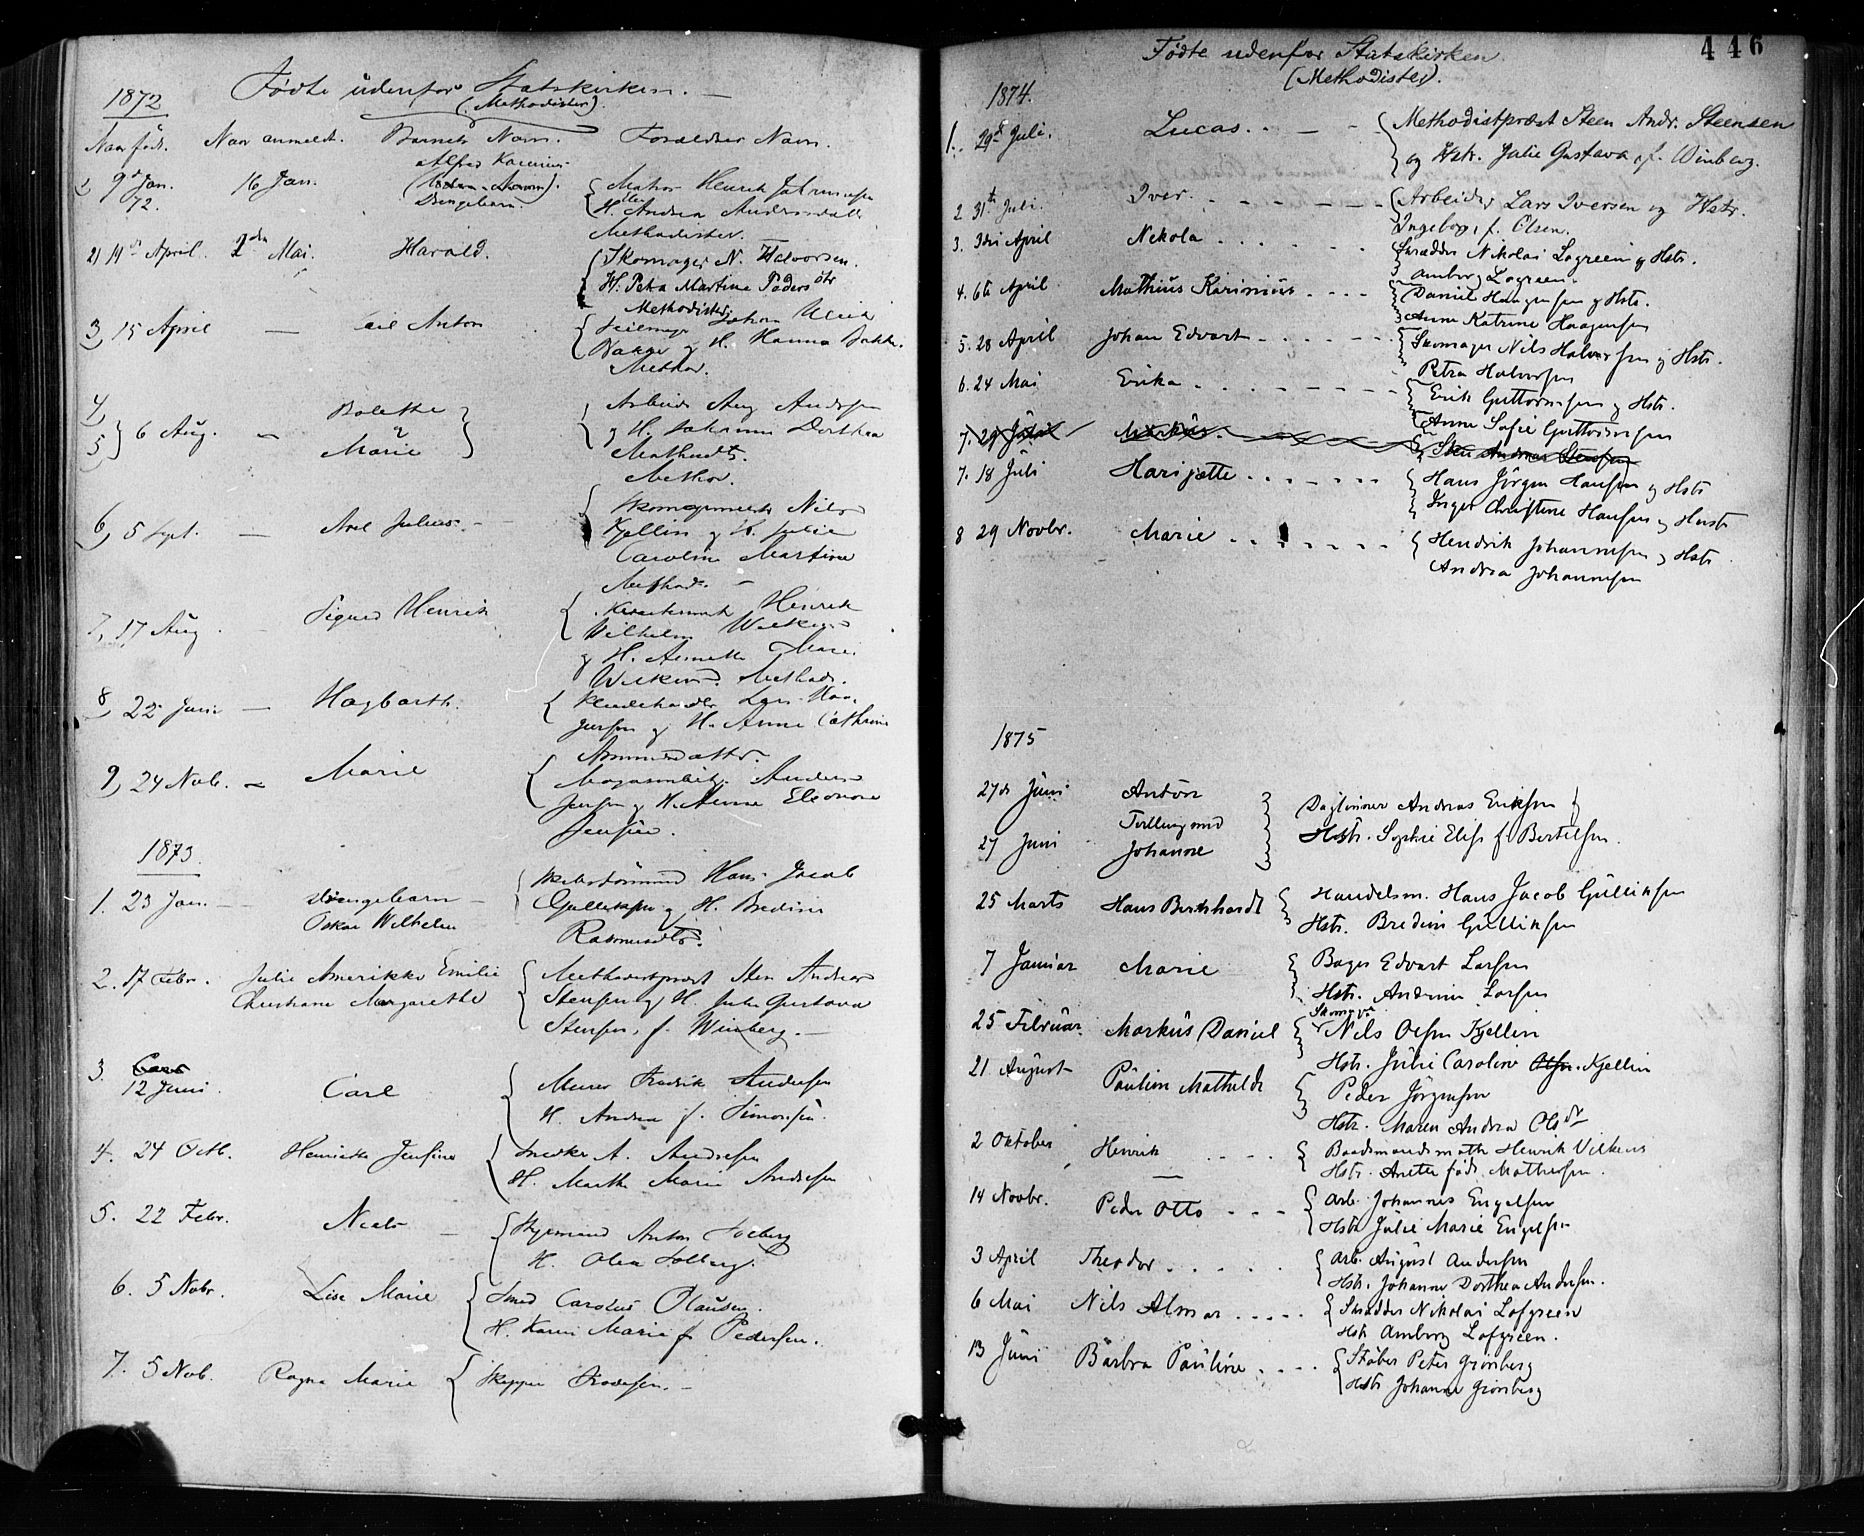 Fødte udenfor Statskirken. —
(Methodister).
1872
Naar født. Naar anmeldt. Barnets Navn. Forældres Navn.
Alfred
1, 9de Jan. 72. 16 Jan. Drengebarn. Henrik Johannesen
H. Andrea
Methodister.
2, 14de April. 2den Mai. Harald. Skomager N. Halvorsen.
H. Petra Martine Pedersdtr
Methodister.
3, 15 April — Anton Johan Ulrik
Bakke og H. Hanna Bakke.
Method.
4,
5, 6 Aug. — Bolette
Marie
Arbeider Aug Andersen
og H. Johanne Dorthea
Method.
6, 5 Sept. — Axel Julius. — Nils
Kjellin og H. Julie
Caroline Martine
Method. —
7, 17 Aug — Sigurd Henrik Henrik
Vilhelm
og H. Annette Marie
Method.
8, 22 Juni — Hagbarth.
og H. Anne Cathrine
9, 24 Novb. — Marie Anders
Jensen og H. Anne Eleonore
Jensen.
1873.
1. 23 Jan. — Drengebarn — Hans Jacob
Oskar Wilhelm Gulliksen og H. Bredine
2. 17 Febr. Julie Amerikke Emilie Methodistpræst Sten Andreas
Christiane Margarethe Stensen og H. Julie Gustava
Stensen, f. Winberg. —
3. 12 Juni Carl Murer Fredrik Andersen
H. Andrea f. Simonsen.
4. 24 Octb. Henriette Jensine A. Andersen
H. Marthe Marie Andersen
5. 22 Febr. — Anton Solberg
H. Olea Solberg.
6. 5 Nobr. Lise Marie Smed Carolus Olausen.
H. Karen Marie f. Pedersen.
7. 5 Nob. Ragna Marie Skipper —
446
Fødte udenfor Statskirken
(Methodister).
1874.
1. 29de Juli. Lucas. — Methodistpræst Steen Andr. Steensen
og Hstr. Julie Gustava f. Winberg.
2. 31te Juli. Iver. Arbeider Lars Iversen og Hstr.
Ingeborg, f. Olsen.
3. 3die April Nekola Skrædder Nikolai Løgreen og Hstr.
Amborg Løgreen.
4. 6te April Mathius Karinius Daniel Haagensen og Hstr.
Anne Katrine Haagensen
5. 28 April Johan Edvart Skomager Nils Halvorsen og Hstr.
Petra Halvorsen
6. 24 Mai Erika Erik Guttormsen og Hstr.
Anne Sofie Guttormsen
7. 29 Juli Markus. Sten Andreas Stensen
7. 18 Juli Harijette Hans Jörgen Hansen og Hstr
Inger Christine Hansen
8 29 Novbr. Marie Hendrik Johannesen og Hstr
Andrea Johannesen
1875
27de Juni Anton Daglønner Andreas Eriksen
Tvillinger med
27 Juni Johanne Hstr. Sophie Elise f Bertelsen.
25 Marts Hans Bernhardt Handelsm. Hans Jacob Gulliksen
Hstr. Bredine Gulliksen
7 Januar Marie Bager Edvart Larsen
Hstr. Andrine Larsen
Skomager
25 Februar Markus Daniel Nils Olsen Kjellin
Hstr. Julie Caroline Olsen. Kjellin
21 August Pauline Mathilde Peder Jörgensen
Hstr. Maren Andrea Olsdtr
2 Oktober Henrik Baadsmandsmath Henrik Vilkens
Hstr. Anette født Mathiesen.
14 Novbr. Peder Otto Arb. Johannes Engelsen
Hstr Julie Marie Engelsen
3 April Theodor Arb. August Andersen
Hstr. Johanne Dorthea Andersen.
6 Mai Nils Almar Skrædder Nikolai Løfgreen
Hstr Amborg Løfgreen.
13 Juni Barbra Pauline Støber Peter Grønberg
Hstr Johanne Grønberg